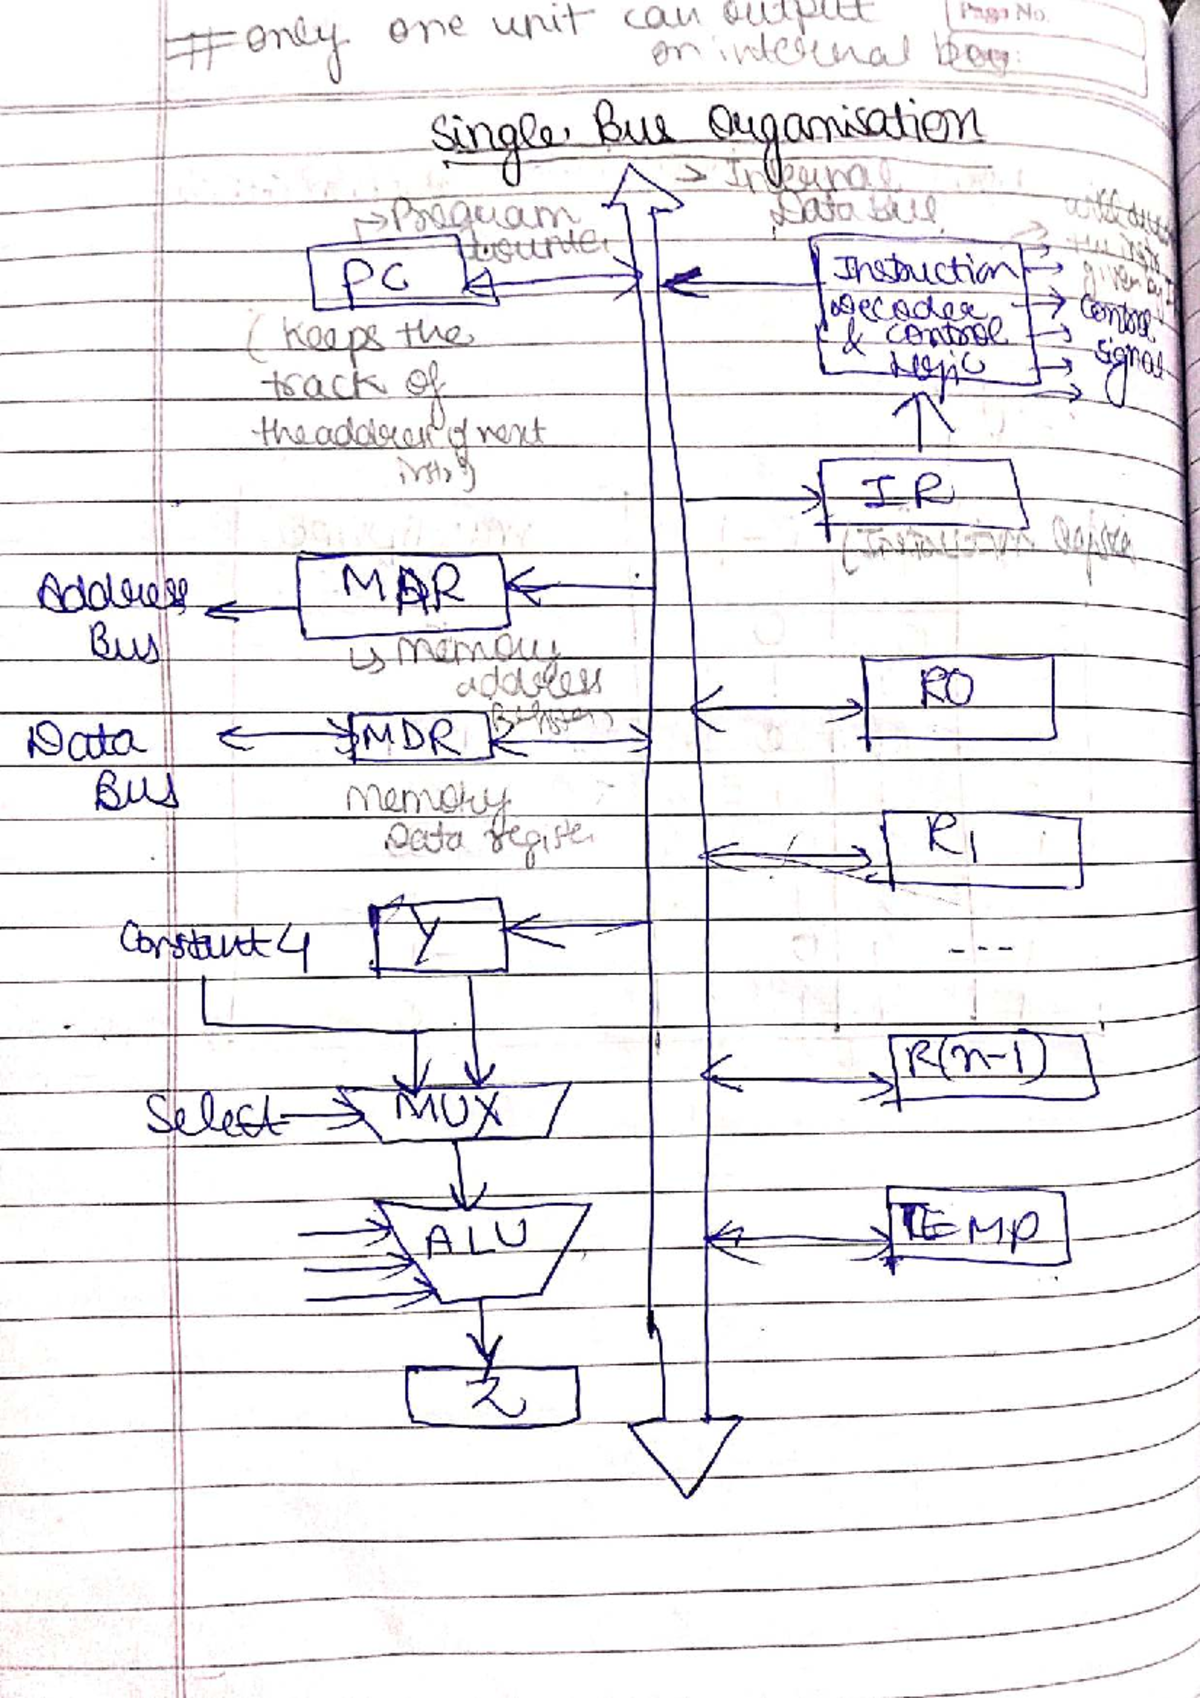 # only one unit can output
on internal bus
Page No.
Single Bus Organisation
→ Internal
Data Bus
→ Program
counter
PC
(Keeps the
track of
the address of next
instr)
Instruction
Decoder
& control
Logic
given by
Control
Signal
IR
(Instruction Register
Address
Bus
MAR
↳ Memory
address
Data
Bus
MDR
Memory
Data register
R0
R1
---
R(n-1)
TEMP
Constant 4
Y
Select
MUX
ALU
Z